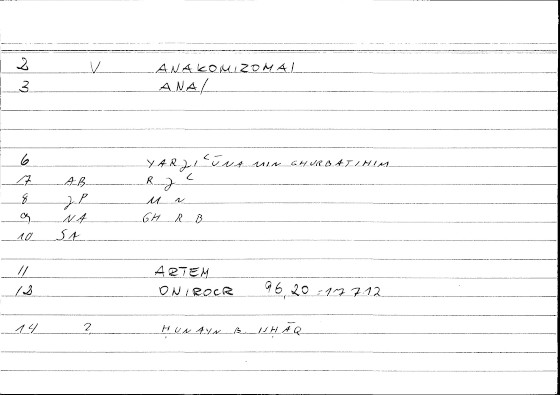 2 V ANAKOMIZOMAI
3 ANA/
6 YARJIʿŪNA MIN GHURBATIHIM
7 AB R J ʿ
8 JP M N
9 NA GH R B
10 SA
11 ARTEM
12 ONIROCR 96,20 -17712
14 2 ḤUNAYN B ISḤĀQ